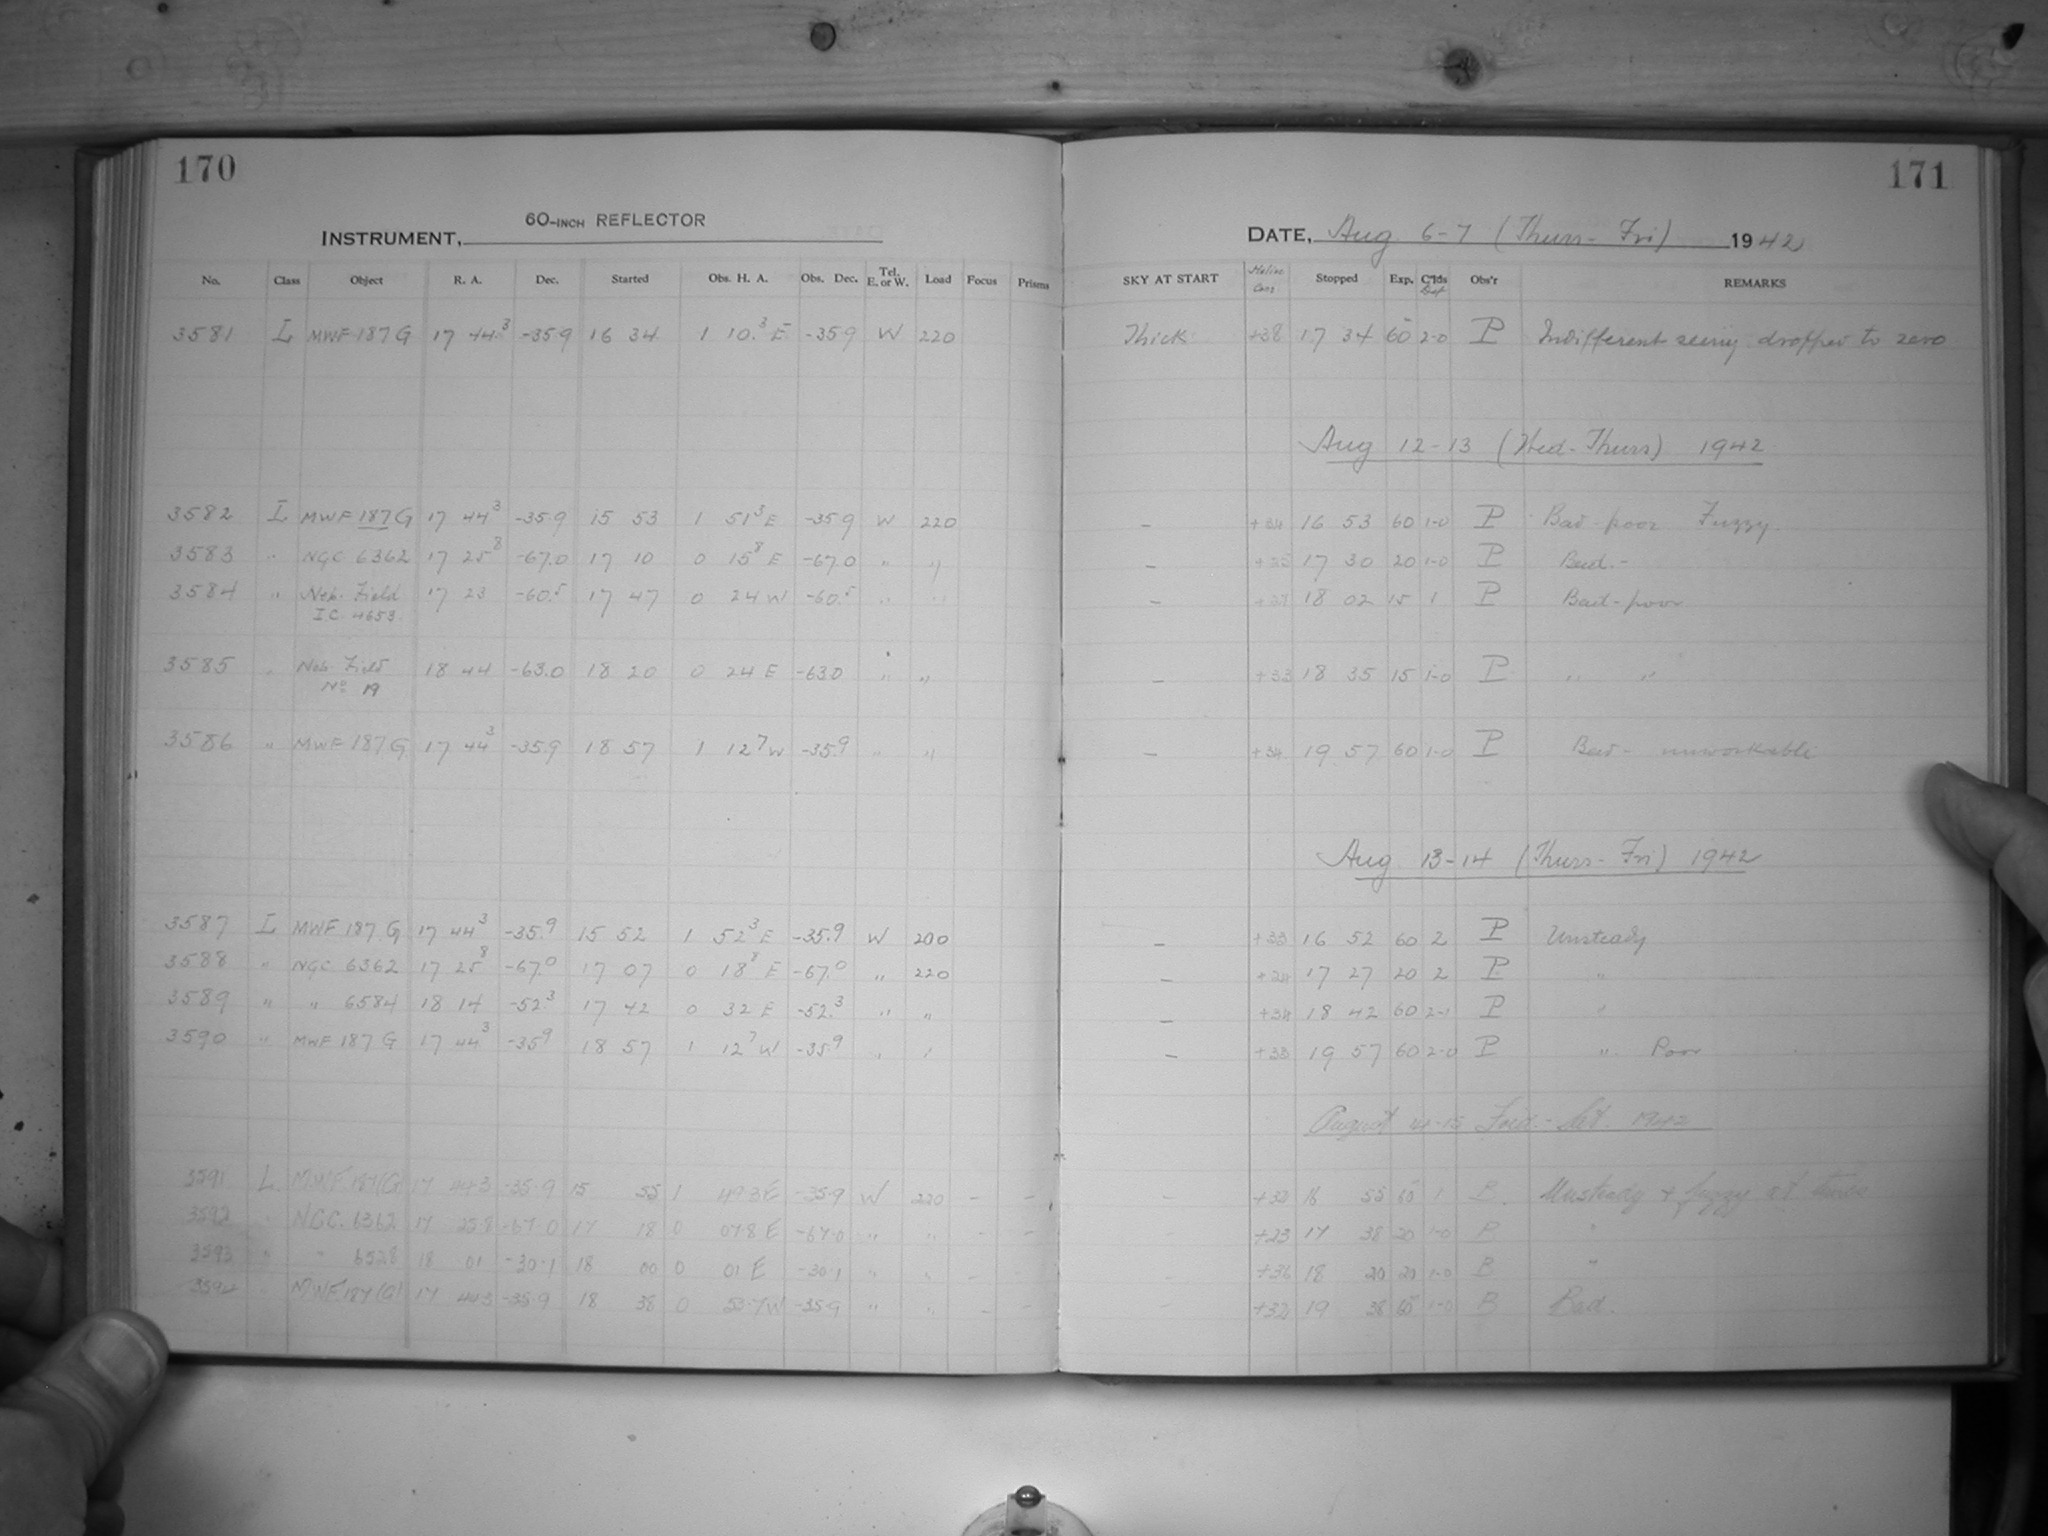 170
INSTRUMENT, 60-INCH REFLECTOR
No. Class Object R. A. Dec. Started Obs. H. A. Obs. Dec. Tel. E. or W. Load Focus Prisms
3581 L MWF 187 G 17 44.3 -35.9 16 34 1 10.3 E -35.9 W 220
3582 L MWF 187 G 17 44 3 -35.9 15 53 1 51 3 E -35.9 W 220
3583 " NGC 6362 17 25 8 -67.0 17 10 0 15 8 E -67.0 " "
3584 " Neb. Field 17 23 -60.5 17 47 0 24 W -60.5 " "
I.C. 4653
3585 " Neb. Field 18 44 -63.0 18 20 0 24 E -63.0 " "
No 19
3586 " MWF 187 G 17 44 3 -35.9 18 57 1 12 7 W -35.9 " "
3587 L MWF 187 G 17 44 3 -35.9 15 52 1 52 3 E -35.9 W 200
3588 " NGC 6362 17 25 8 -67.0 17 07 0 18 8 E -67.0 " 220
3589 " " 6584 18 14 -52.3 17 42 0 32 E -52.3 " "
3590 " MWF 187 G 17 44 3 -35.9 18 57 1 12 7 W -35.9 " "
3591 L MWF 187(G) 17 44.3 -35.9 15 55 1 49.3 E -35.9 W 220 - -
3592 " NGC. 6362 17 25.8 -67.0 17 18 0 07.8 E -67.0 " " - -
3593 " " 6528 18 01 -30.1 18 00 0 01 E -30.1 " " - -
3594 " MWF 187(G) 17 44.3 -35.9 18 38 0 53.7 W -35.9 " " - -
171
DATE, Aug 6-7 (Thurs-Fri) 1942
SKY AT START Stopped Exp. Obs'r REMARKS
Thick +38 17 34 60 2-0 P Indifferent seeing dropped to zero
Aug 12-13 (Wed-Thurs) 1942
- +34 16 53 60 1-0 P Bad-poor Fuzzy.
- 17 30 20 1-0 P Bad.-
- 18 02 15 1 P Bad-poor
- +33 18 35 15 1-0 P " "
- +34 19 57 60 1-0 P Bad- unworkable
Aug 13-14 (Thurs-Fri) 1942
- +33 16 52 60 2 P Unsteady
- +24 17 27 20 2 P "
- +34 18 42 60 2-1 P "
- +33 19 57 60 2-0 P " Poor
August 14-15 Frid.-Sat. 1942
- +32 16 55 60 1 B. Unsteady + fuzzy at times
- +23 17 38 20 1-0 B "
- +36 18 20 20 1-0 B "
- +32 19 38 60 1-0 B Bad.